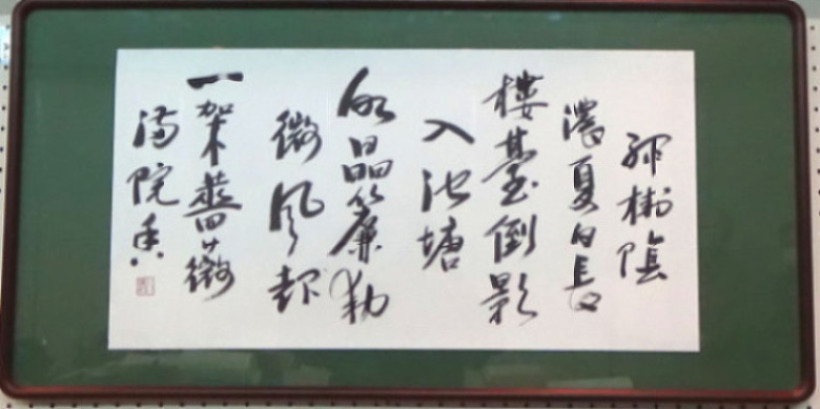 綠樹陰
濃夏日長
樓臺倒影
入池塘
水晶簾動
微風起
一架薔薇
滿院香